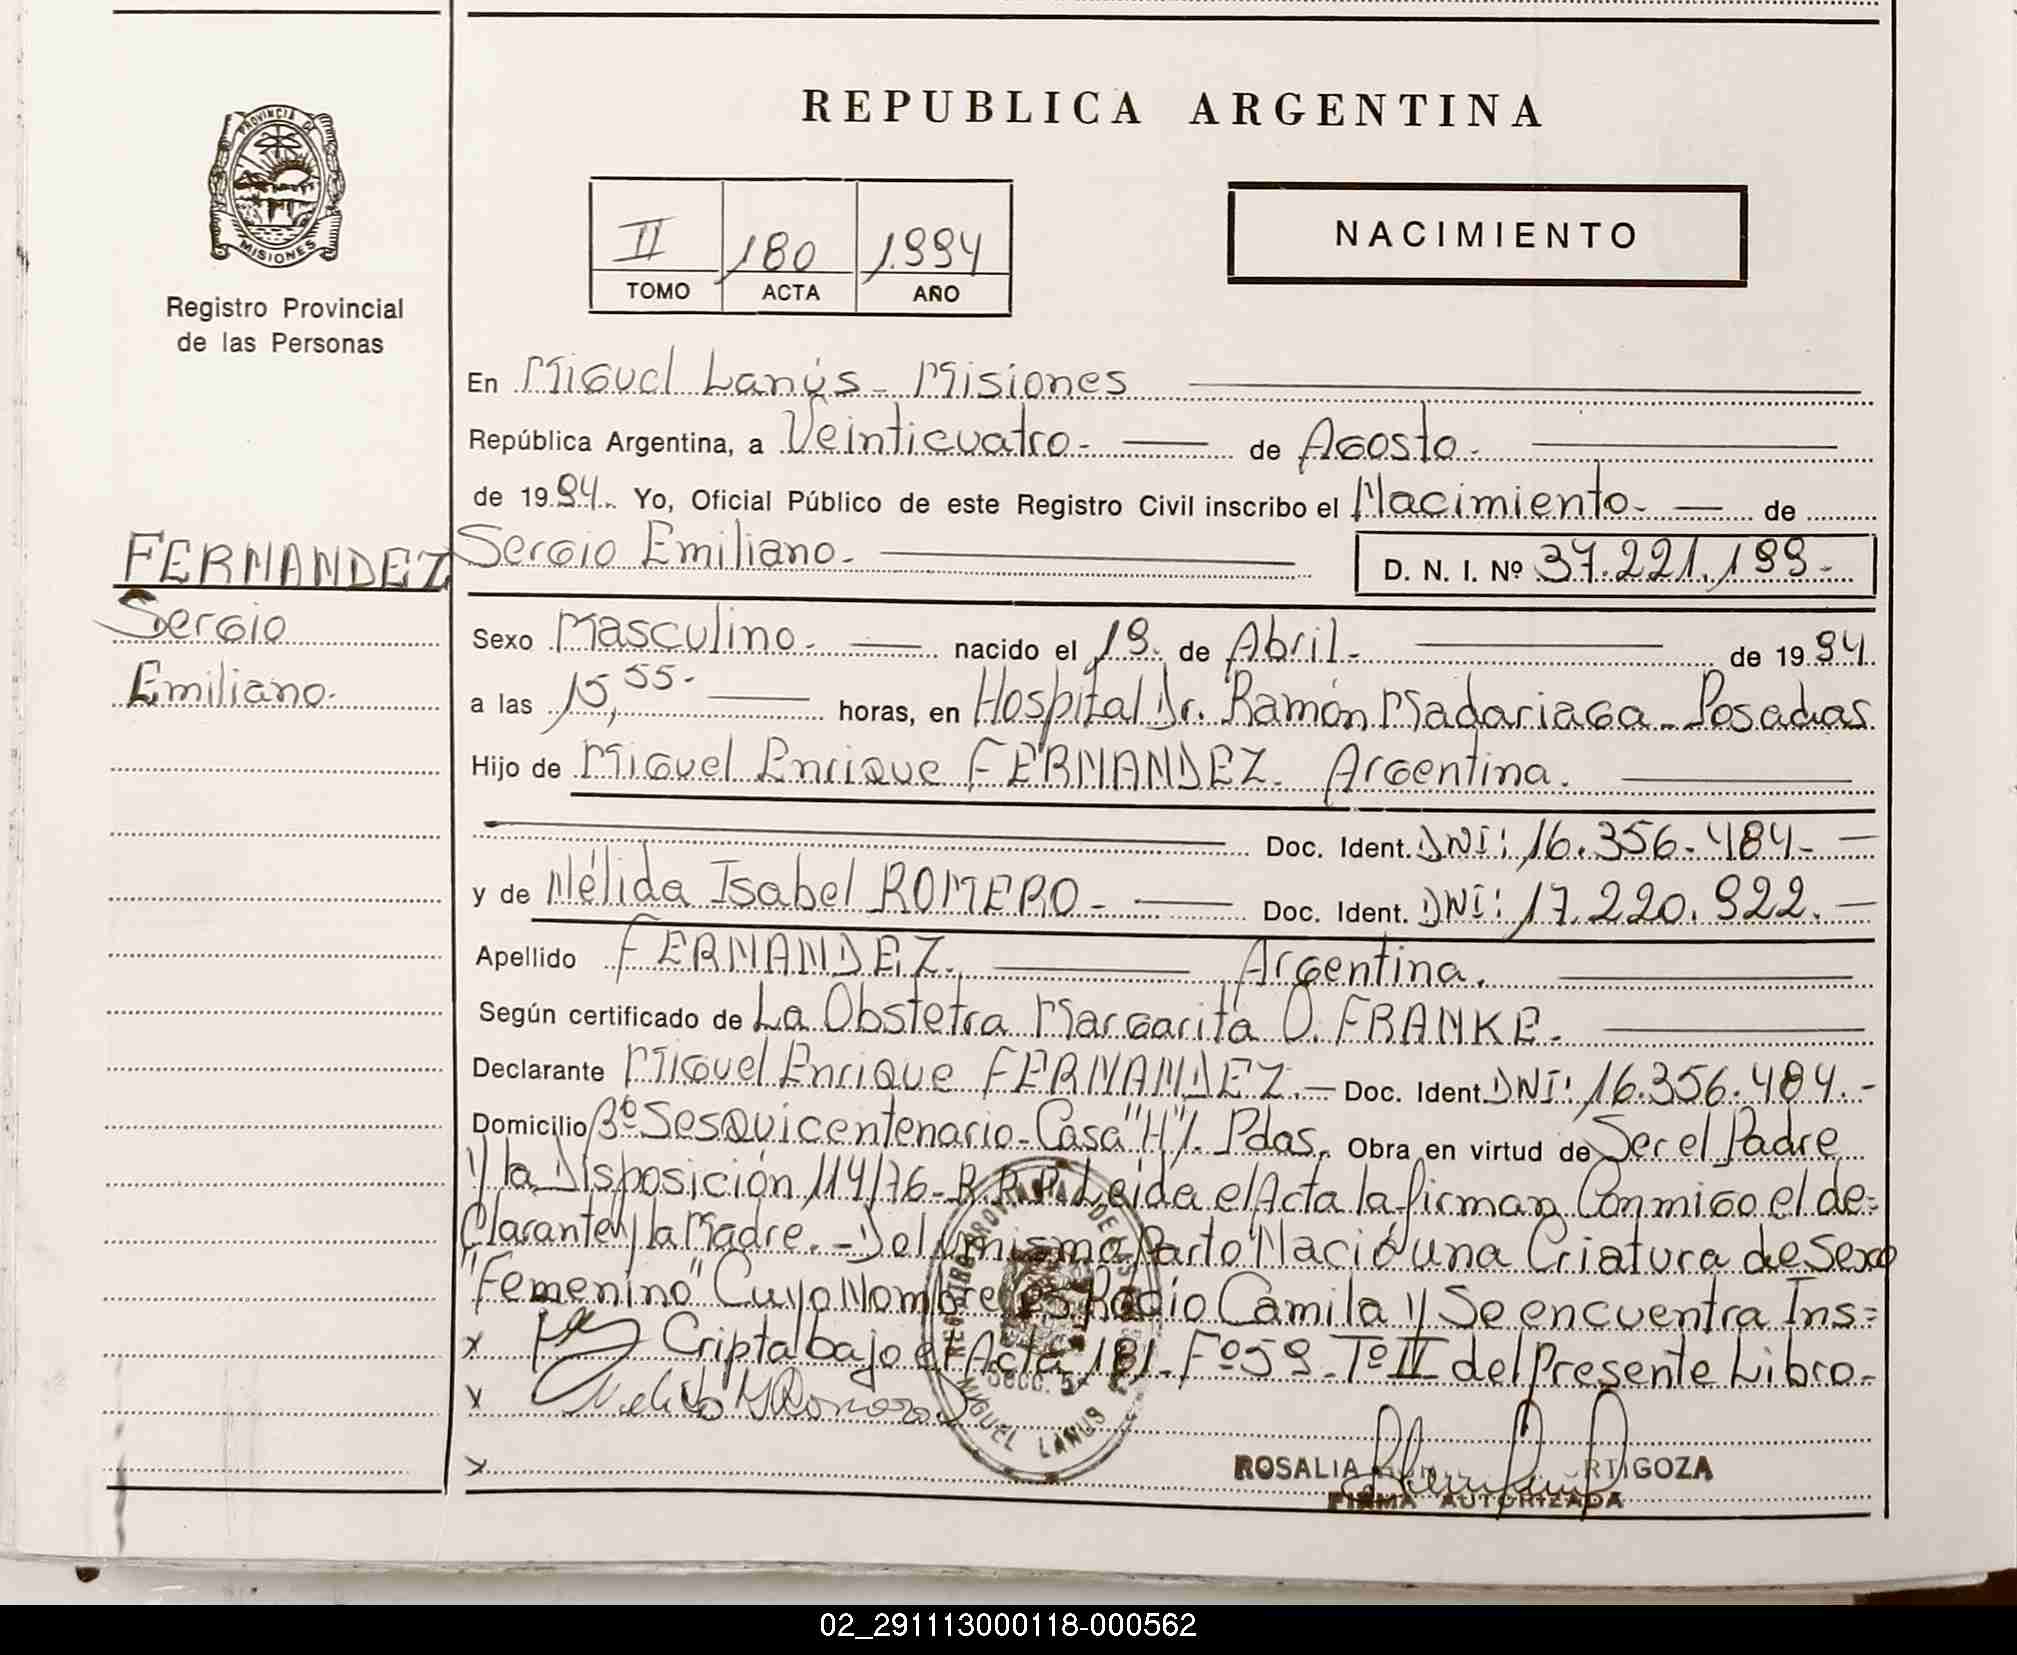 REPUBLICA ARGENTINA
PROVINCIA DE
MISIONES
Registro Provincial
de las Personas
II 180 1.994
TOMO ACTA AÑO
NACIMIENTO
En Miguel Lanús - Misiones
República Argentina, a Veinticuatro.- de Agosto.-
de 1994.. Yo, Oficial Público de este Registro Civil inscribo el Nacimiento.- de
FERNANDEZ
Sergio
Emiliano.-
Sergio Emiliano.- D. N. I. Nº 37.221.199.-
Sexo Masculino.- nacido el 19. de Abril.- de 1994.
a las 15,55.- horas, en Hospital Dr. Ramón Madariaga - Posadas
Hijo de Miguel Enrique FERNANDEZ. Argentina.
Doc. Ident. DNI: 16.356.484.-
y de Nélida Isabel ROMERO.- Doc. Ident. DNI: 17.220.922.-
Apellido FERNANDEZ. Argentina.
Según certificado de La Obstetra Margarita O. FRANKE.
Declarante Miguel Enrique FERNANDEZ.- Doc. Ident. DNI: 16.356.484.-
Domicilio Bº Sesquicentenario - Casa "H". Pdas. Obra en virtud de Ser el Padre
y la Disposición 114/76 - R.R.P. Leida el Acta la firman Conmigo el de=
Clarante y la Madre. - Del mismo Parto Nació una Criatura de Sexo
"Femenino" Cuyo Nombre es Rocio Camila y Se encuentra Ins=
x Cripta bajo el Acta 181 - Fº 59 - Tº II del Presente Libro.-
x
x
SECC. 5ª
MIGUEL LANUS
ROSALIA
FIRMA AUTORIZADA
02_291113000118-000562